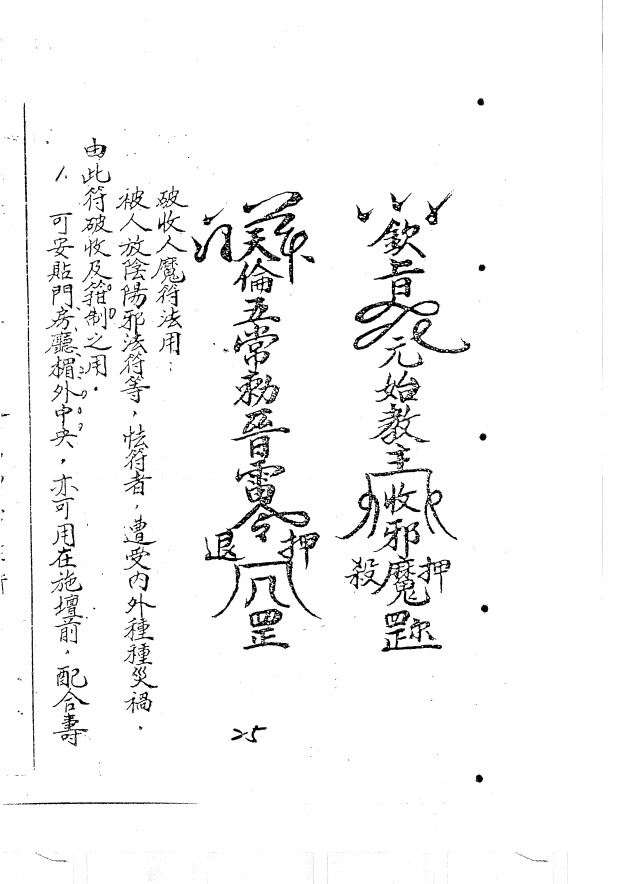 欽旨元始教主收邪魔罡
押
殺
天倫五常勅晉雷令
押
退
罡
破收人魔符法用：
被人放陰陽邪法符等，怯符者，遭受內外種種災禍，
由此符破收及箝制之用。
1. 可安貼門房廳楣外中央，亦可用在施壇前，配合壽
25